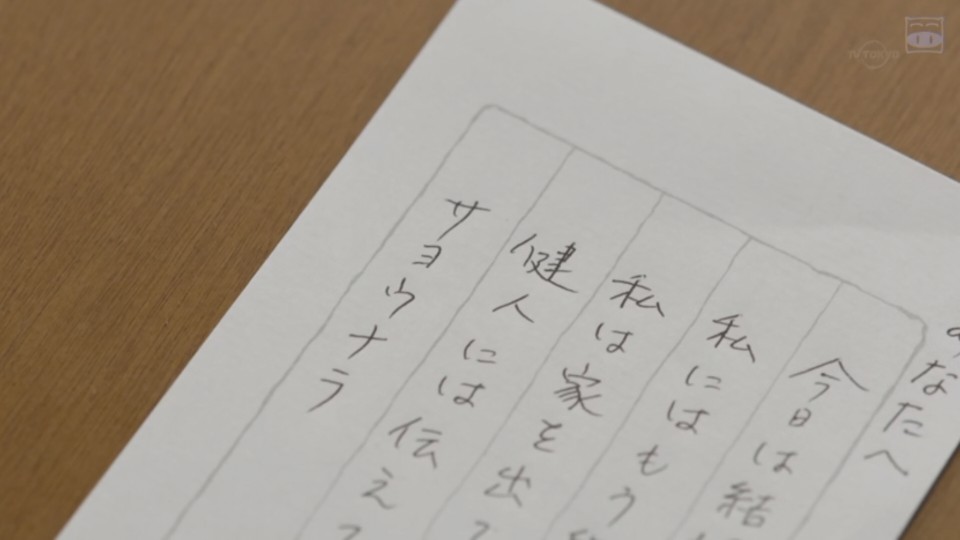 あなたへ
今日は結
私にはもう
私は家を出
健人には伝え
サヨウナラ
TV TOKYO